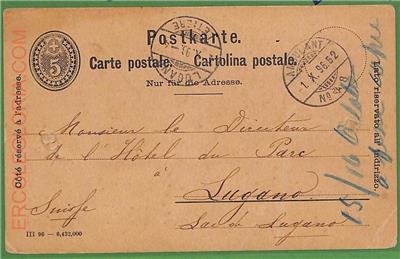 Postkarte.
Carte postale. Cartolina postale.
Nur für die Adresse.
5
LUGANO
LETTERE
AMBULANT
1. X. 96. 52
No
Côté réservé à l'adresse.
Lato riservato all'indirizzo.
Monsieur le Directeur
de l'Hôtel du Parc
à
Lugano
Suisse
Lac de Lugano.
15/16
III 96 — 6,432,000